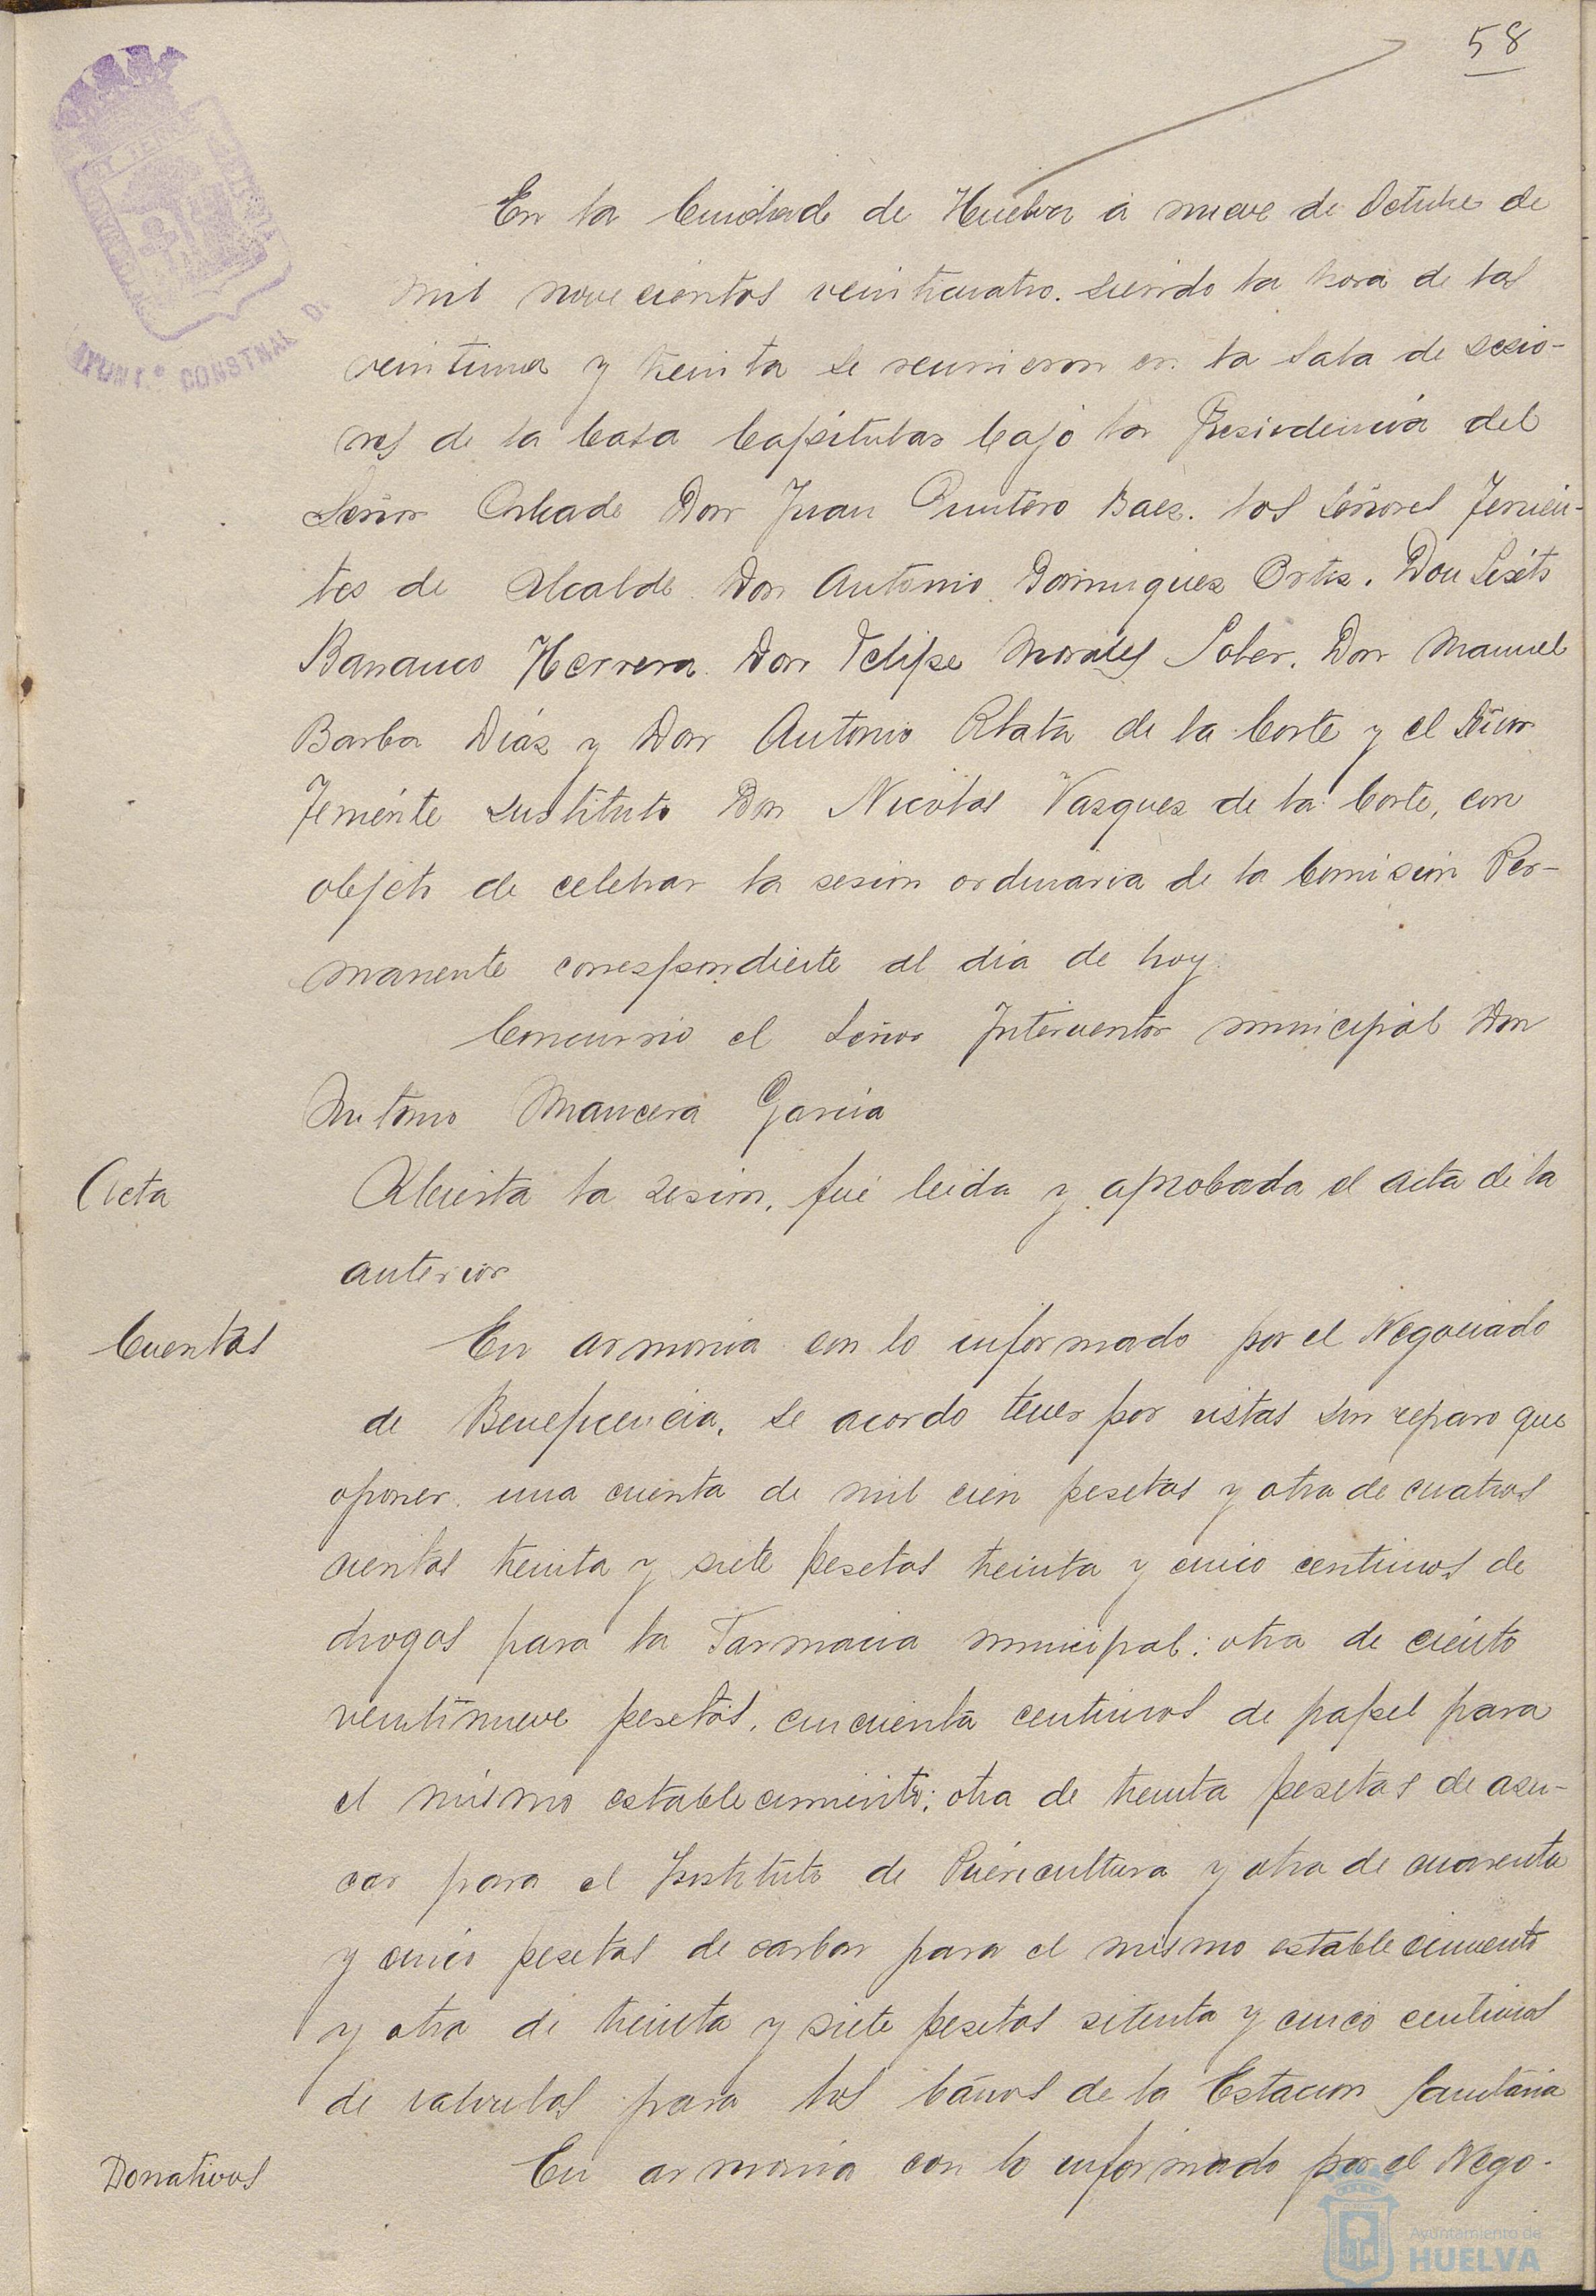 58
En la Ciudad de Huelva a nueve de Octubre de
mil novecientos veinticuatro. siendo la hora de las
veintiuna y treinta se reunieron en la Sala de sesio-
nes de la Casa Capitular bajo la Presidencia del
Señor Alcalde Don Juan Quintero Baez. los Señores Tenien-
tes de Alcalde Don Antonio Dominguez Ortiz. Don
Barranco Herrera. Don Felipe Morales Soler. Don Manuel
Barba Diáz y Don Antonio de la Corte y el Señor
Teniente sustituto Don Nicolas Vazquez de la Corte, con
objeto de celebrar la sesion ordinaria de la Comision Per-
manente correspondiente al dia de hoy.
Concurrio el Señor Interventor municipal Don
Antonio Mancera Garcia
Acta
Abierta la sesion, fué leida y aprobada el acta de la
anterior
Cuentas
En armonia con lo informado por el Negociado
de Beneficencia, se acordo tener por vistas sin reparo que
oponer. una cuenta de mil cien pesetas y otra de cuatros
cientas treinta y siete pesetas treinta y cinco centimos de
drogas para la Farmacia municipal: otra de ciento
veintinueve pesetas, cincuenta centimos de papel para
el mismo establecimiento; otra de treinta pesetas de azu-
car para el Instituto de Puericultura y otra de cuarenta
y cinco pesetas de carbon para el mismo establecimiento
y otra de treinta y siete pesetas setenta y cinco centimos
de valvulas para los baños de la Estacion Sanitaria
Donativos
En armonia con lo informado por el Nego-
AYUNT.º CONSTNAL DE
Ayuntamiento de
HUELVA